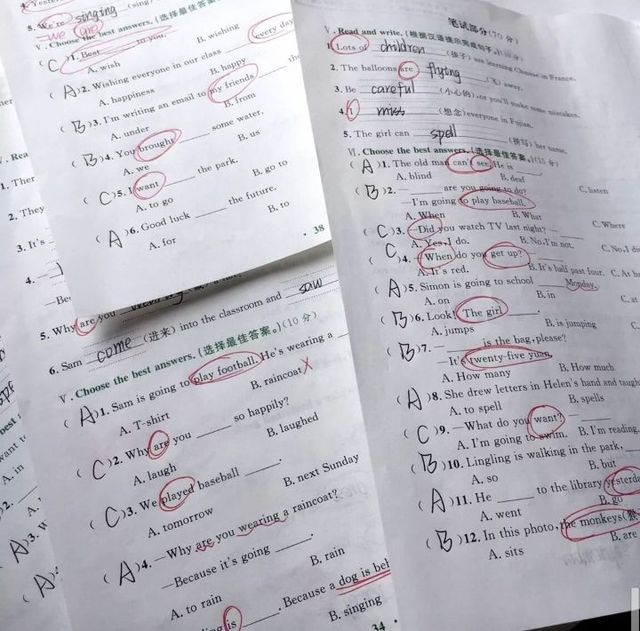 5. We're singing (sing)
We are
V. Choose the best answers. (选择最佳答案
(C)1. Best _____ to you.
A. wish B. wishing
(A)2. Wishing everyone in our class _____ every day
A. happiness B. happy
(B)3. I'm writing an email to my friends _____ the
A. under B. from
(B)4. You brought _____ some water.
A. we B. us
(C)5. I want _____ the park.
A. to go B. go to
(A)6. Good luck _____ the future.
A. for B. to
38
V. Rea
1. Ther
2. They
3. It's
4. —
—Be
5. Why are you
6. Sam come (进来) into the classroom and saw
V. Choose the best answers. (选择最佳答案。)(10 分)
(A)1. Sam is going to play football. He's wearing a
A. T-shirt B. raincoat
(C)2. Why are you _____ so happily?
A. laugh B. laughed
(C)3. We played baseball _____.
A. tomorrow B. next Sunday
(A)4. —Why are you wearing a raincoat?
—Because it's going _____.
A. to rain B. rain
is _____. Because a dog is bei
B. singing
34
笔试部分(70 分)
V. Read and write. (根据汉语提示完成句子。)
1. Lots of children (孩子) are learning Chinese in France.
2. The balloons are flying (飞) away.
3. Be careful (小心的), or you'll make some mistakes.
4. I miss (想念) everyone in Fujian.
5. The girl can spell (拼写) her name.
VI. Choose the best answers. (选择最佳答案。)
(A)1. The old man can't see. He is
A. blind B. deaf
(B)2. — _____ are you going to do? C. listen
—I'm going to play baseball.
A. When B. What
(C)3. —Did you watch TV last night? — C. Where
A. Yes, I do. B. No, I'm not. C. No, I di
(C)4. —When do you get up? —
A. It's red. B. It's half past four. C. At h
(A)5. Simon is going to school _____ Monday.
A. on B. in
(B)6. Look! The girl _____.
A. jumps B. is jumping
(B)7. — _____ is the bag, please?
—It's twenty-five yuan.
A. How many B. How much
(A)8. She drew letters in Helen's hand and taugh
A. to spell B. spells
(C)9. —What do you want? —
A. I'm going to swim. B. I'm reading.
(B)10. Lingling is walking in the park, _____
A. so B. but
(A)11. He _____ to the library yesterda
A. went B. go
(B)12. In this photo, the monkeys(
A. sits B. are